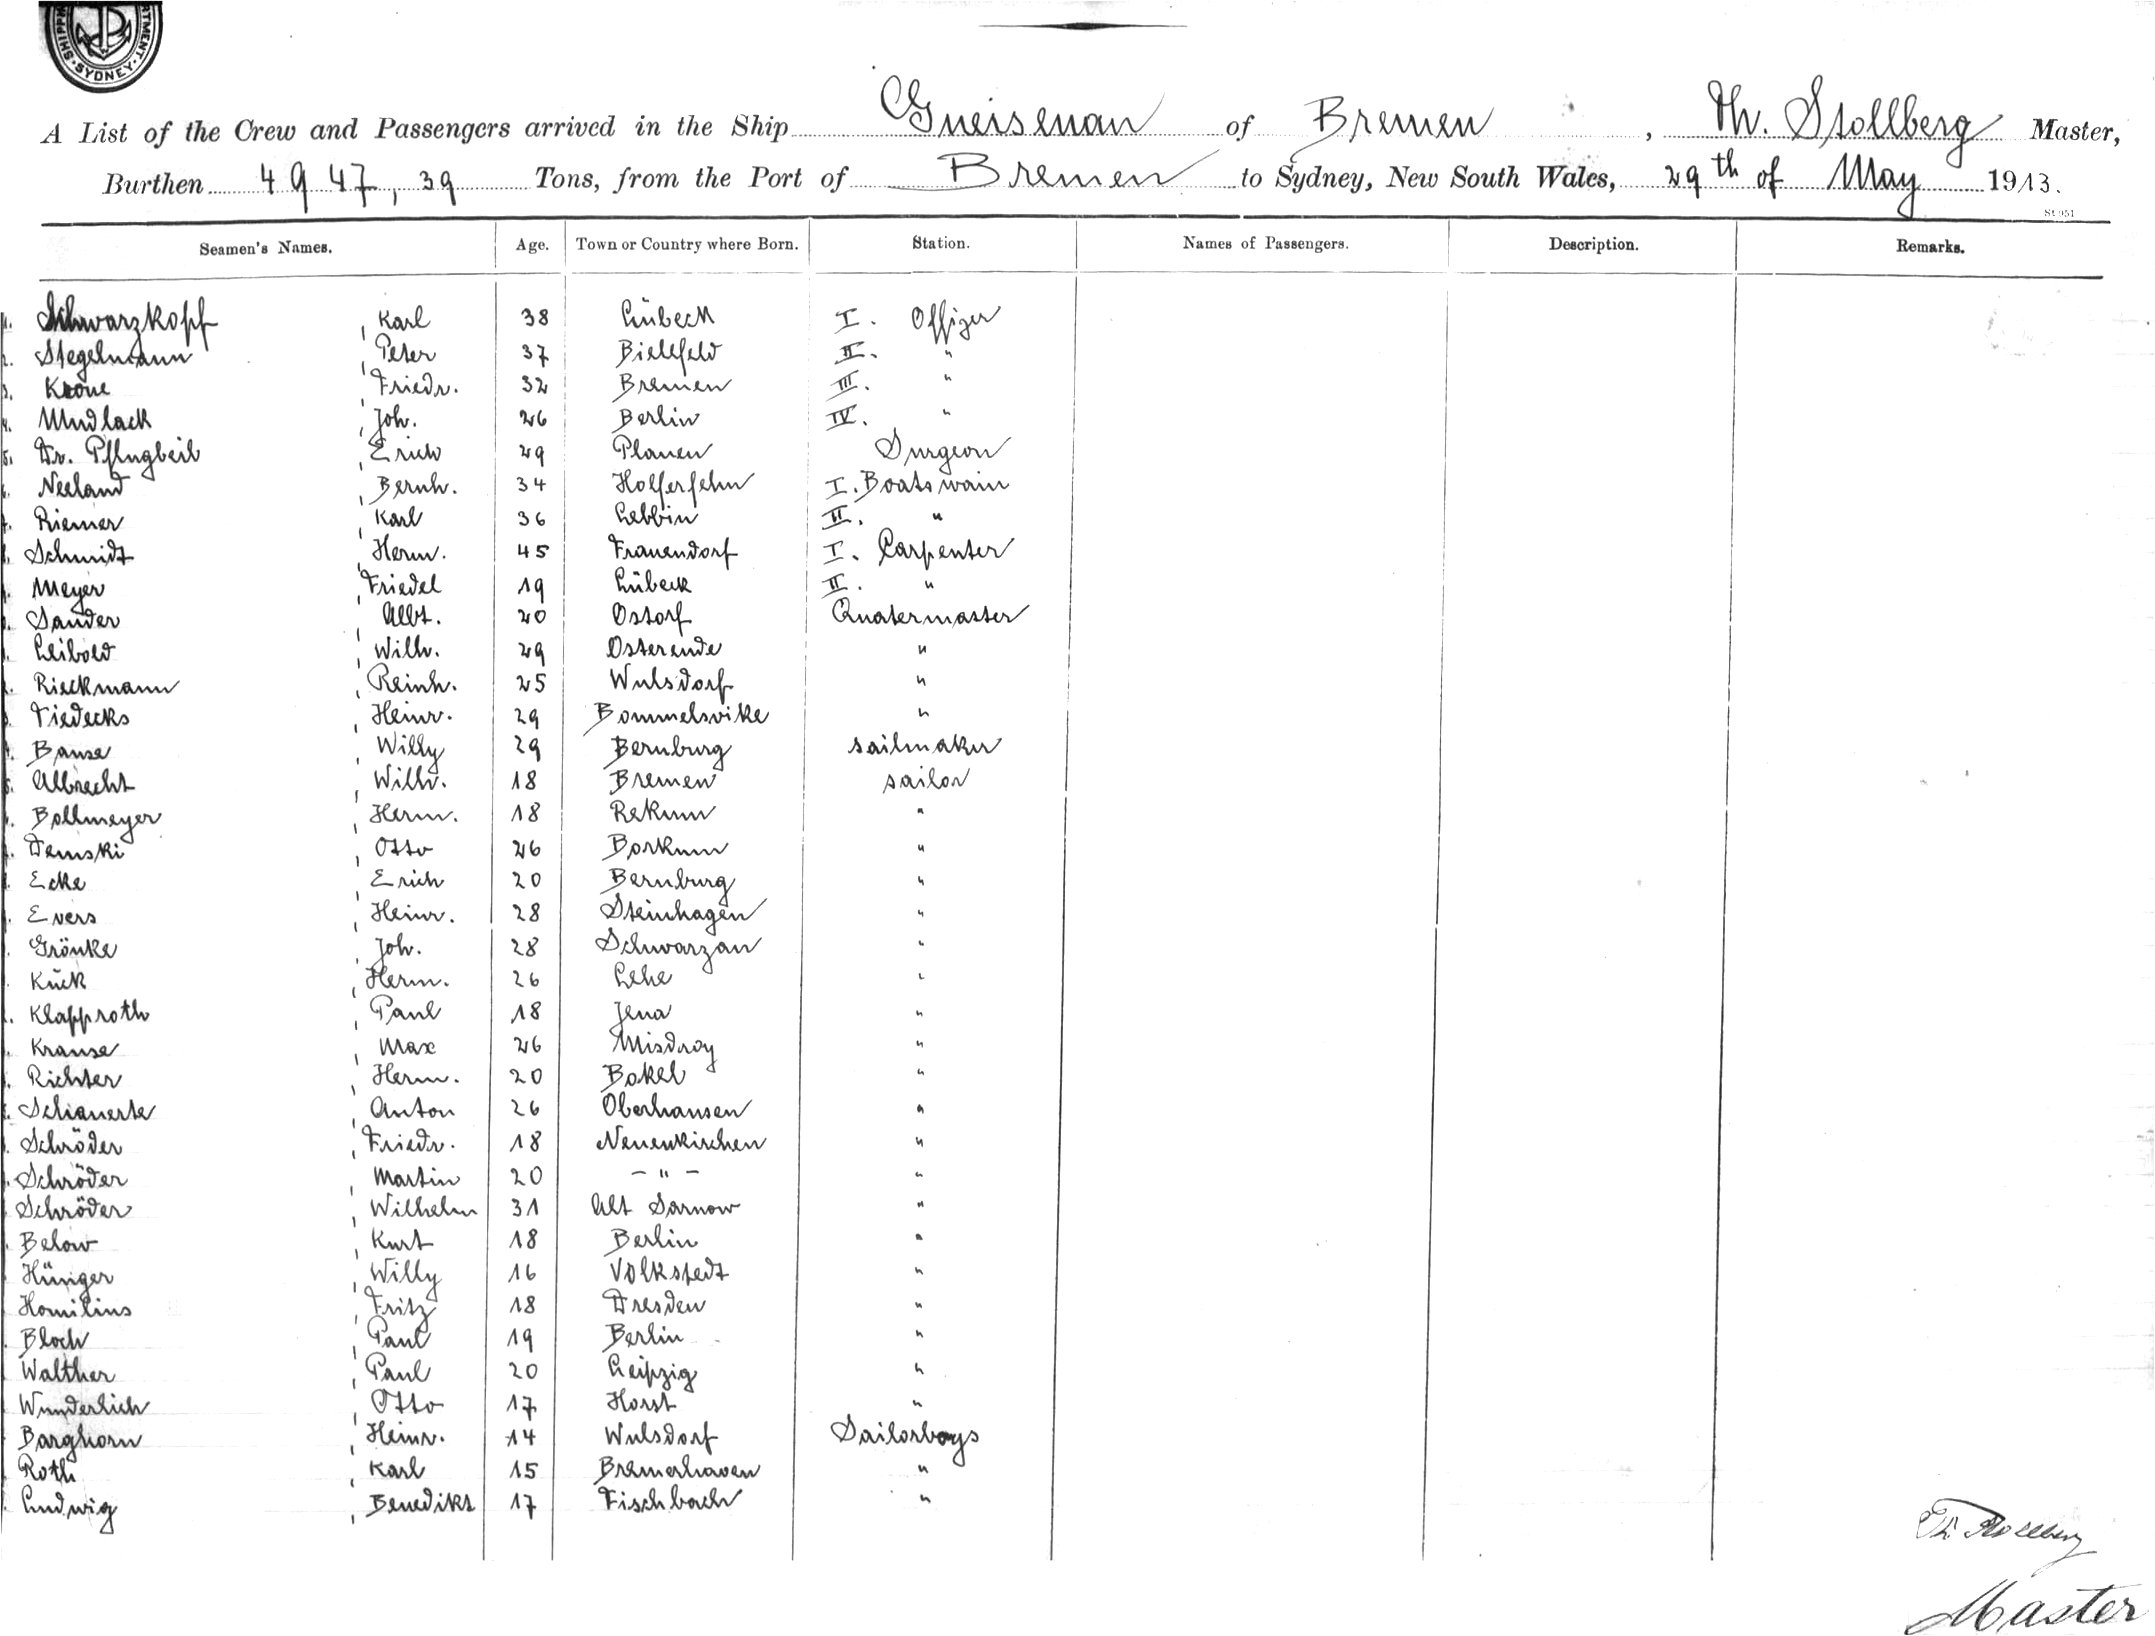 SHIPP RTMENT. SYDNEY.
A List of the Crew and Passengers arrived in the Ship Gneisenau of Bremen, Th. Stollberg Master,
Burthen 4947,39 Tons, from the Port of Bremen to Sydney, New South Wales, 29th of May 1913.
St 951
Seamen's Names. Age. Town or Country where Born. Station. Names of Passengers. Description. Remarks.
1. Schwarzkopf, Karl 38 Lübeck I. Offizer
2. Stegelmann, Peter 37 Bielefeld II. "
3. Krone, Friedr. 32 Bremen III. "
4. Mudlack, Joh. 26 Berlin IV. "
5. Dr. Pflugbeil, Erich 29 Plauen Surgeon
Neeland, Bernh. 34 Holferfehn I. Boatswain
Riemer, Karl 36 Lebbin II. "
Schmidt, Herm. 45 Frauendorf I. Carpenter
Meyer, Friedel 19 Lübeck II. "
Sander, Albt. 20 Ostorf Quatermaster
Leibold, Wilh. 29 Osterende "
Rieckmann, Reinh. 25 Wulsdorf "
Tiedecks, Heinr. 29 Bommelsvike "
Banse, Willy 29 Bernburg sailmaker
Albrecht, Wilh. 18 Bremen sailor
Bollmeyer, Herm. 18 Rekum "
Demski, Otto 26 Borkum "
Ecke, Erich 20 Bernburg "
Evers, Heinr. 28 Steinhagen "
Grönke, Joh. 28 Schwarzau "
Kück, Herm. 26 Lehe "
Klapproth, Paul 18 Jena "
Krause, Max 26 Misdroy "
Richter, Herm. 20 Bokel "
Schauerte, Anton 26 Oberhausen "
Schröder, Friedr. 18 Neuenkirchen "
Schröder, Martin 20 - " - "
Schröder, Wilhelm 31 Alt Sarnow "
Below, Kurt 18 Berlin "
Hüniger, Willy 16 Volkstedt "
Homilius, Fritz 18 Dresden "
Bloch, Paul 19 Berlin "
Walther, Paul 20 Leipzig "
Wunderlich, Otto 17 Horst "
Barghorn, Heinr. 14 Wulsdorf Sailorboys
Roth, Karl 15 Bremerhaven "
Ludwig, Benedikt 17 Fischbach "
Th. Stollberg
Master